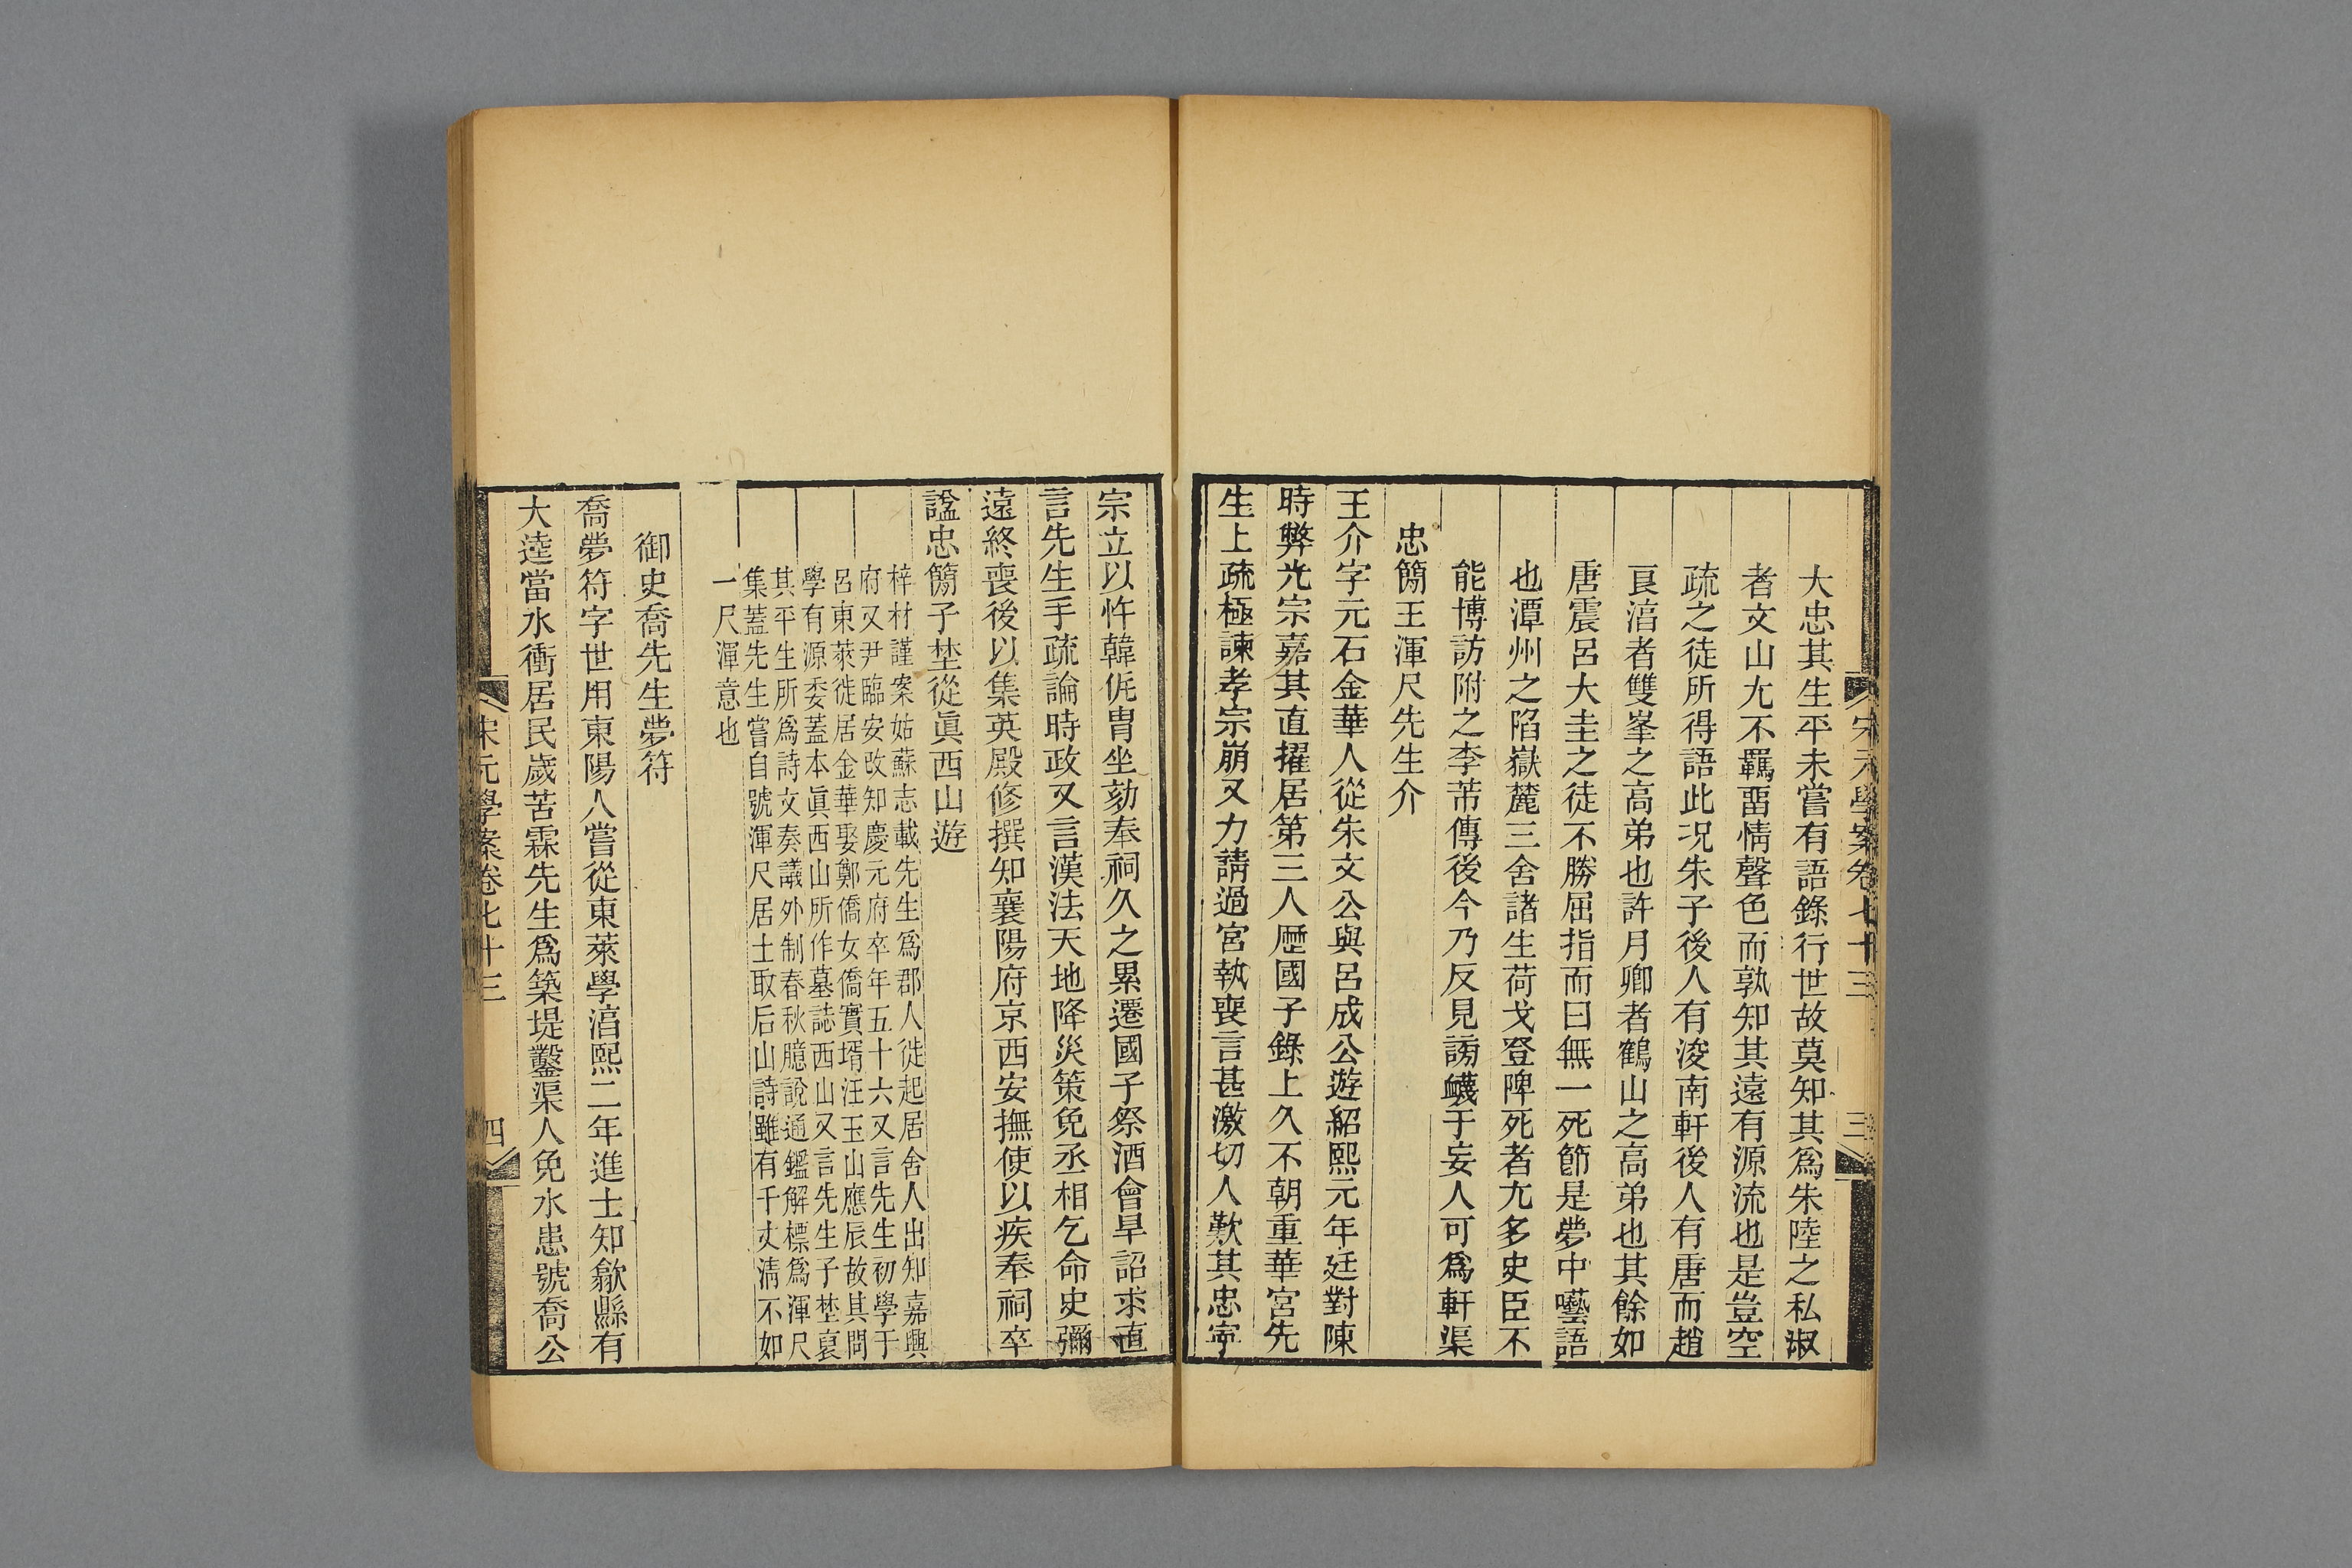 宋元學案卷七十三
三
大忠其生平未嘗有語錄行世故莫知其爲朱陸之私淑
者文山尢不羈畱情聲色而孰知其遠有源流也是豈空
疏之徒所得語此况朱子後人有浚南軒後人有唐而趙
良淯者雙峯之高弟也許月卿者鶴山之高弟也其餘如
唐震呂大圭之徒不勝屈指而曰無一死節是夢中囈語
也潭州之陷嶽麓三舍諸生荷戈登陴死者尢多史臣不
能博訪附之李芾傳後今乃反見謗衊于妄人可爲軒渠
忠簡王渾尺先生介
王介字元石金華人從朱文公與呂成公遊紹熙元年廷對陳
時弊光宗嘉其直擢居第三人歷國子錄上久不朝重華宮先
生上疏極諫孝宗崩又力請過宮執喪言甚激切人歎其忠寧
宗立以忤韓侂胄坐劾奉祠久之累遷國子祭酒會旱詔求直
言先生手疏論時政又言漢法天地降災策免丞相乞命史彌
遠終喪後以集英殿修撰知襄陽府京西安撫使以疾奉祠卒
諡忠簡子埜從眞西山遊
梓材謹案姑蘇志載先生爲郡人徙起居舍人出知嘉興
府又尹臨安改知慶元府卒年五十六又言先生初學于
呂東萊徙居金華娶鄭僑女僑實壻汪玉山應辰故其問
學有源委蓋本眞西山所作墓誌西山又言先生子埜裒
其平生所爲詩文奏議外制春秋臆說通鑑解標爲渾尺
集蓋先生嘗自號渾尺居士取后山詩雖有千丈淸不如
一尺渾意也
御史喬先生夢符
喬夢符字世用東陽人嘗從東萊學淯熙二年進士知歙縣有
大逵當水衝居民歲苦霖先生爲築堤鑿渠人免水患號喬公
宋元學案卷七十三
四